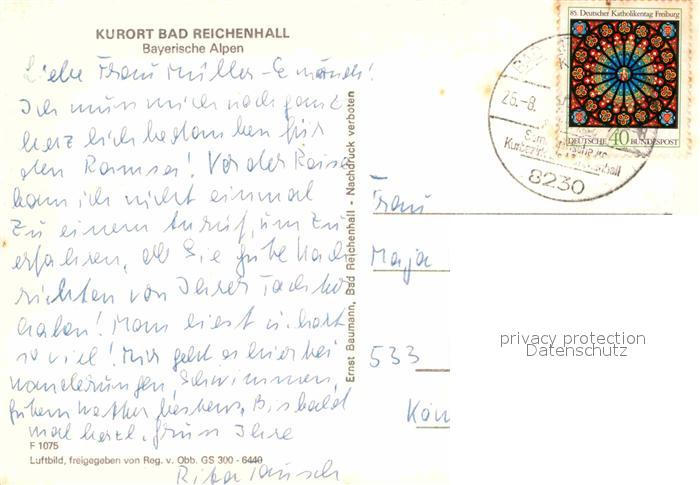 KURORT BAD REICHENHALL
Bayerische Alpen
Liebe Frau Müller-
Ich muss mich noch ganz
herzlich bedanken für
den Ramses! Vor der Reise
kam ich nicht einmal
zu einem Anruf, um zu
erfahren, ob Sie gute Nach
richten von Ihrer Tochter
haben! Man liest u. hört
so viel! Mir geht es hier bei
Wanderungen, Schwimmen,
gutem Wetter bestens. Bis bald
mal herzl. Gruss Ihre
Rita
F 1075
Luftbild, freigegeben von Reg. v. Obb. GS 300 - 6440
Ernst Baumann, Bad Reichenhall - Nachdruck verboten
85. Deutscher Katholikentag Freiburg
DEUTSCHE 40 BUNDESPOST
25.-8.
8230
Frau
Maja
533
Kön
privacy protection
Datenschutz